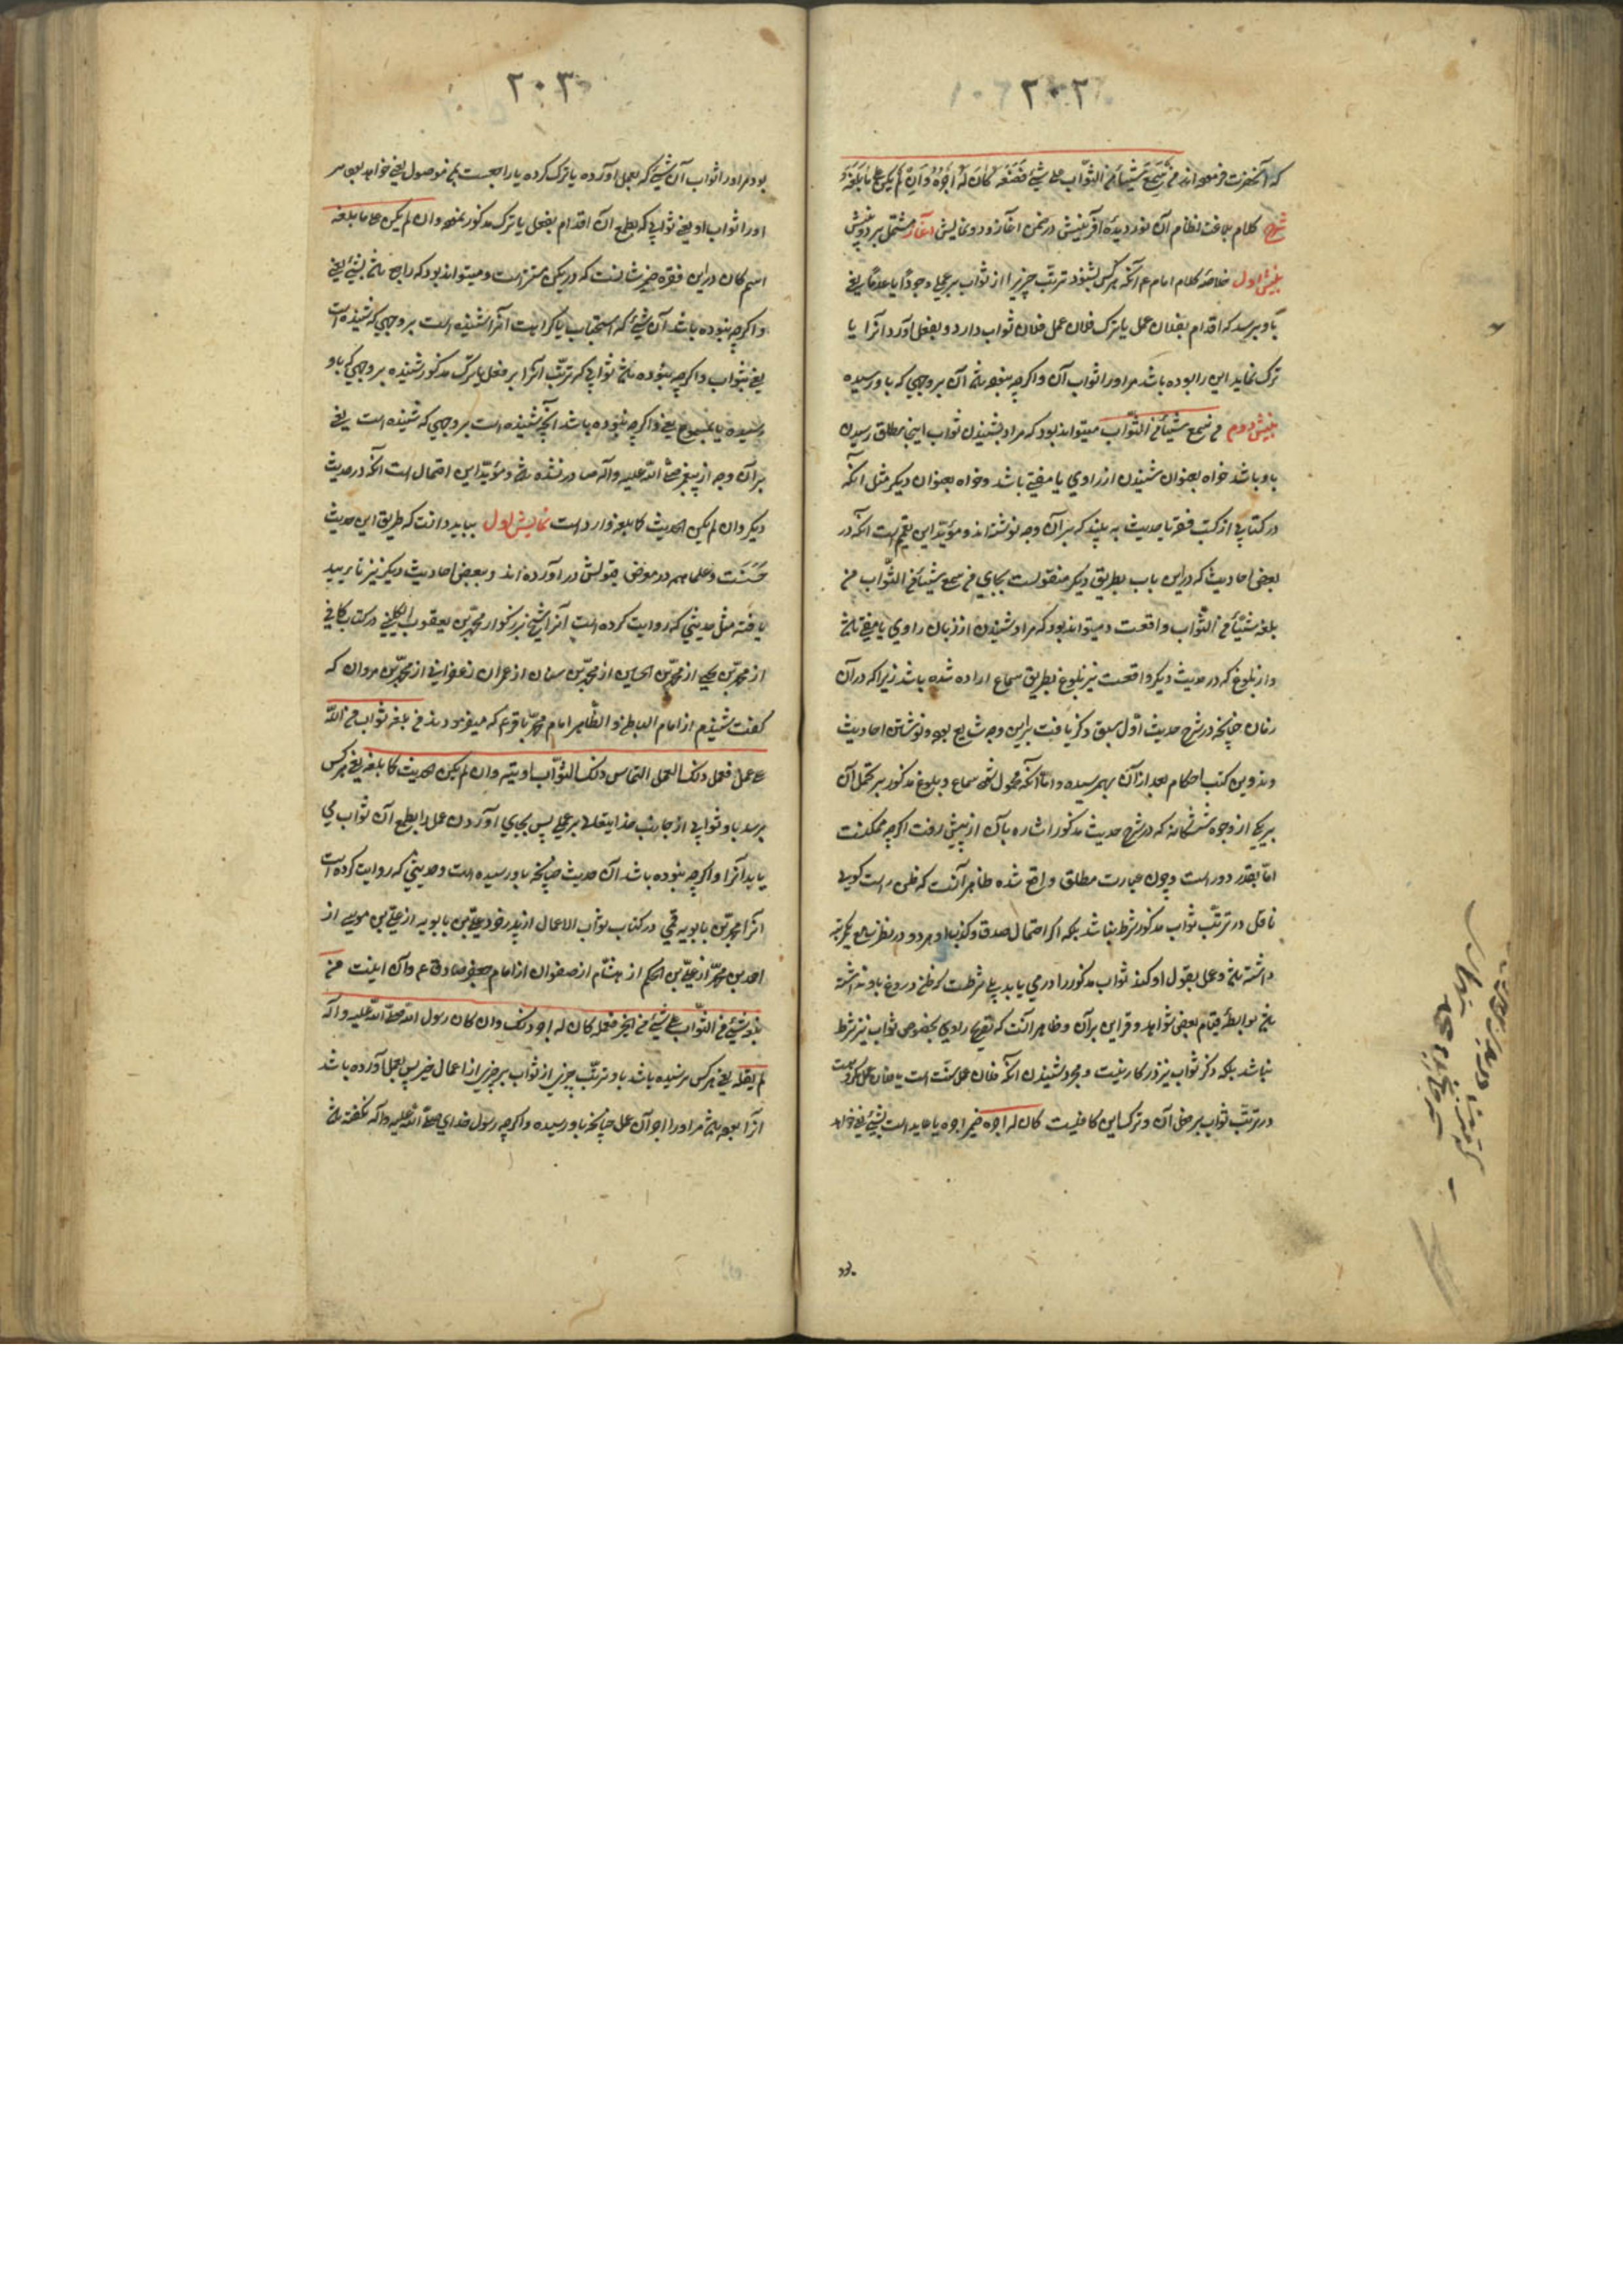 ٢٠٢
که آنحضرت فرموده اند من سمع شیئا من الثواب علی شئ فصنعه کان له اجره و ان لم یکن علی ما بلغه
شرح کلام بلاغت نظام آن نور دیده آفرینش در ضمن آغاز و دو نمایش آغاز مشتمل بر دو بینش
بینش اول خلاصه کلام امام ع آنکه هر کس بشنود ترتب چیزیرا از ثواب بر عملی وجودا یا عدما یعنی
باو برسد که اقدام بفلان عمل یا ترک فلان عمل فلان ثواب دارد و بفعل آورد آنرا یا
ترک نماید این را بوده باشد مر او را ثواب آن و اکرچه نبوده باشد آن بر وجهی که باو رسیده
بینش دوم من سمع شیئا من الثواب میتواند بود که مراد بشنیدن ثواب اینجا مطلق رسیدن
باو باشد خواه بعنوان شنیدن از راوی یا مفتی باشد و خواه بعنوان دیکر مثل آنکه
در کتابی از کتب فقه یا حدیث به بیند که بر آن وجه نوشته اند و مؤید این تعمیم است آنکه در
بعضی احادیث که در این باب بطریق دیکر منقولست بجای من سمع شیئا من الثواب من
بلغه شیئا من الثواب واقعست و میتواند بود که مراد شنیدن از زبان راوی یا مفتی باشد
و از بلوغ که در حدیث دیکر واقعست نیز بلوغ بطریق سماع اراده شده باشد زیرا که در آن
زمان چنانچه در شرح حدیث اول سبق ذکر یافت براین وجه شایع بوده و نوشتن احادیث
و تدوین کتب احکام بعد از آن بهمرسیده و اما آنکه محمول شود سماع و بلوغ مذکور بر تحمل آن
بیکی از وجوه ششکانه که در شرح حدیث مذکور اشاره بآن از پیش رفت اکرچه ممکنست
اما بقدر دور است و چون عبارت مطلق واقع شده ظاهر آنست که ظن راست کویی
ناقل در ترتب ثواب مذکور شرط نباشد بلکه اکر احتمال صدق و کذب او هر دو در نظر سامع یکمرتبه
داشته باشد و عمل بقول او کند ثواب مذکور را در می یابد بلی شرطست که ظن دروغ باو نداشته
باشد بواسطه قیام بعضی شواهد و قراین بر آن و ظاهر آنست که تصریح راوی بخصوص ثواب نیز شرط
نباشد بلکه ذکر ثواب نیز در کار نیست و مجرد شنیدن آنکه فلان عمل سنت است یا فلان عمل مکروهست
در ترتب ثواب بر فعل آن و ترک این کافیست کان له اجره ضمیر اجره یا عاید است بشئ یعنی خواهد
٢٠٣
بود مر او را ثواب آن شیئی که بعمل آورده یا ترک کرده یا راجعست بمن موصول یعنی خواهد بود مر
او را ثواب او یعنی ثوابی که بطمع آن اقدام بفعل یا ترک مذکور نموده و ان لم یکن علی ما بلغه
اسم کان در این فقره ضمیر شانست که در یکن مستتر است و میتواند بود که راجع باشد بشئ یعنی
و اکرچه نبوده باشد آن شئ که استحباب یا کراهیت آنرا شنیده است بر وجهی که شنیده است
یعنی بثواب و اکرچه نبوده باشد ثوابی که ترتب آنرا بر فعل یا ترک مذکور شنیده بر وجهی که باو
رسیده یا بمسموع یعنی و اکرچه نبوده باشد آنچه شنیده است بر وجهی که شنیده است یعنی
بر آن وجه از پیغمبر صلی الله علیه و آله صادر نشده باشد و مؤید این احتمال است آنکه در حدیث
دیکر و ان لم یکن الحدیث کما بلغه وارد است نمایش اول بباید دانست که طریق این حدیث
حسنست و علما همه در معرض قبولش در آورده اند و ببعضی احادیث دیکر نیز تایید
یافته مثل حدیثی که روایت کرده است آنرا شیخ بزرکوار محمد بن یعقوب الکلینی در کتاب کافی
از محمد بن یحیی از محمد بن الحسین از محمد بن سنان از عمران زعفرانی از محمد بن مروان که
کفت شنیدم از امام الباطن و الظاهر امام محمد باقر ع که میفرمودند من بلغه ثواب من الله
علی عمل فعمل ذلک العمل التماس ذلک الثواب اوتیه و ان لم یکن الحدیث کما بلغه یعنی هر کس
برسد باو ثوابی از جانب خدایتعالی بر عملی پس بجای آورد آن عمل را بطمع آن ثواب می
یابد آنرا و اکرچه نبوده باشد آن حدیث چنانچه باو رسیده است و حدیثی که روایت کرده است
آنرا محمد بن بابویه قمی در کتاب ثواب الاعمال از پدر خود علی بن بابویه از علی بن موسی از
احمد بن محمد از علی بن الحکم از هشام از صفوان از امام جعفر صادق ع و آن اینست من
بلغه شئ من الثواب علی شئ من الخیر فعمله کان له اجر ذلک و ان کان رسول الله صلی الله علیه و آله
لم یقله یعنی هر کس رسیده باشد باو ترتب چیزی از ثواب بر چیزی از اعمال خیر پس بعمل آورده باشد
آنرا بوده باشد مر او را اجر آن عمل چنانچه باو رسیده و اکرچه رسول خدای صلی الله علیه و آله نکفته باشد